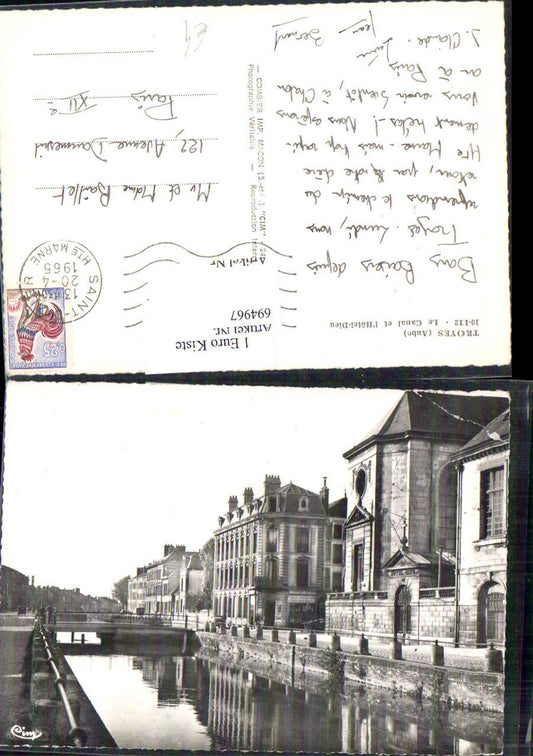 TROYES (Aube)
10-112 - Le Canal et l'Hôtel-Dieu
Bons Baisers depuis
Troyes. Lundi, nous
reprendrons le chemin du
retour, par votre chère
Hte Marne mais trop rapi-
dement hélas! Nous espérons
vous revoir bientôt, à
ou à Paris
J. Claude.
Jean Bernard
COMBIER IMP. MACON (S.-et-L.) "CIM"
Photographie Véritable - Reproduction inter
Artikel Nr.
1 Euro Kiste
Artikel Nr.
694967
SAINT
13 H
20-4
1965
HTE MARNE
0,25
Mr et Mme Baillet
122, Avenue Daumesnil
Paris
XIIe
€4
Cim